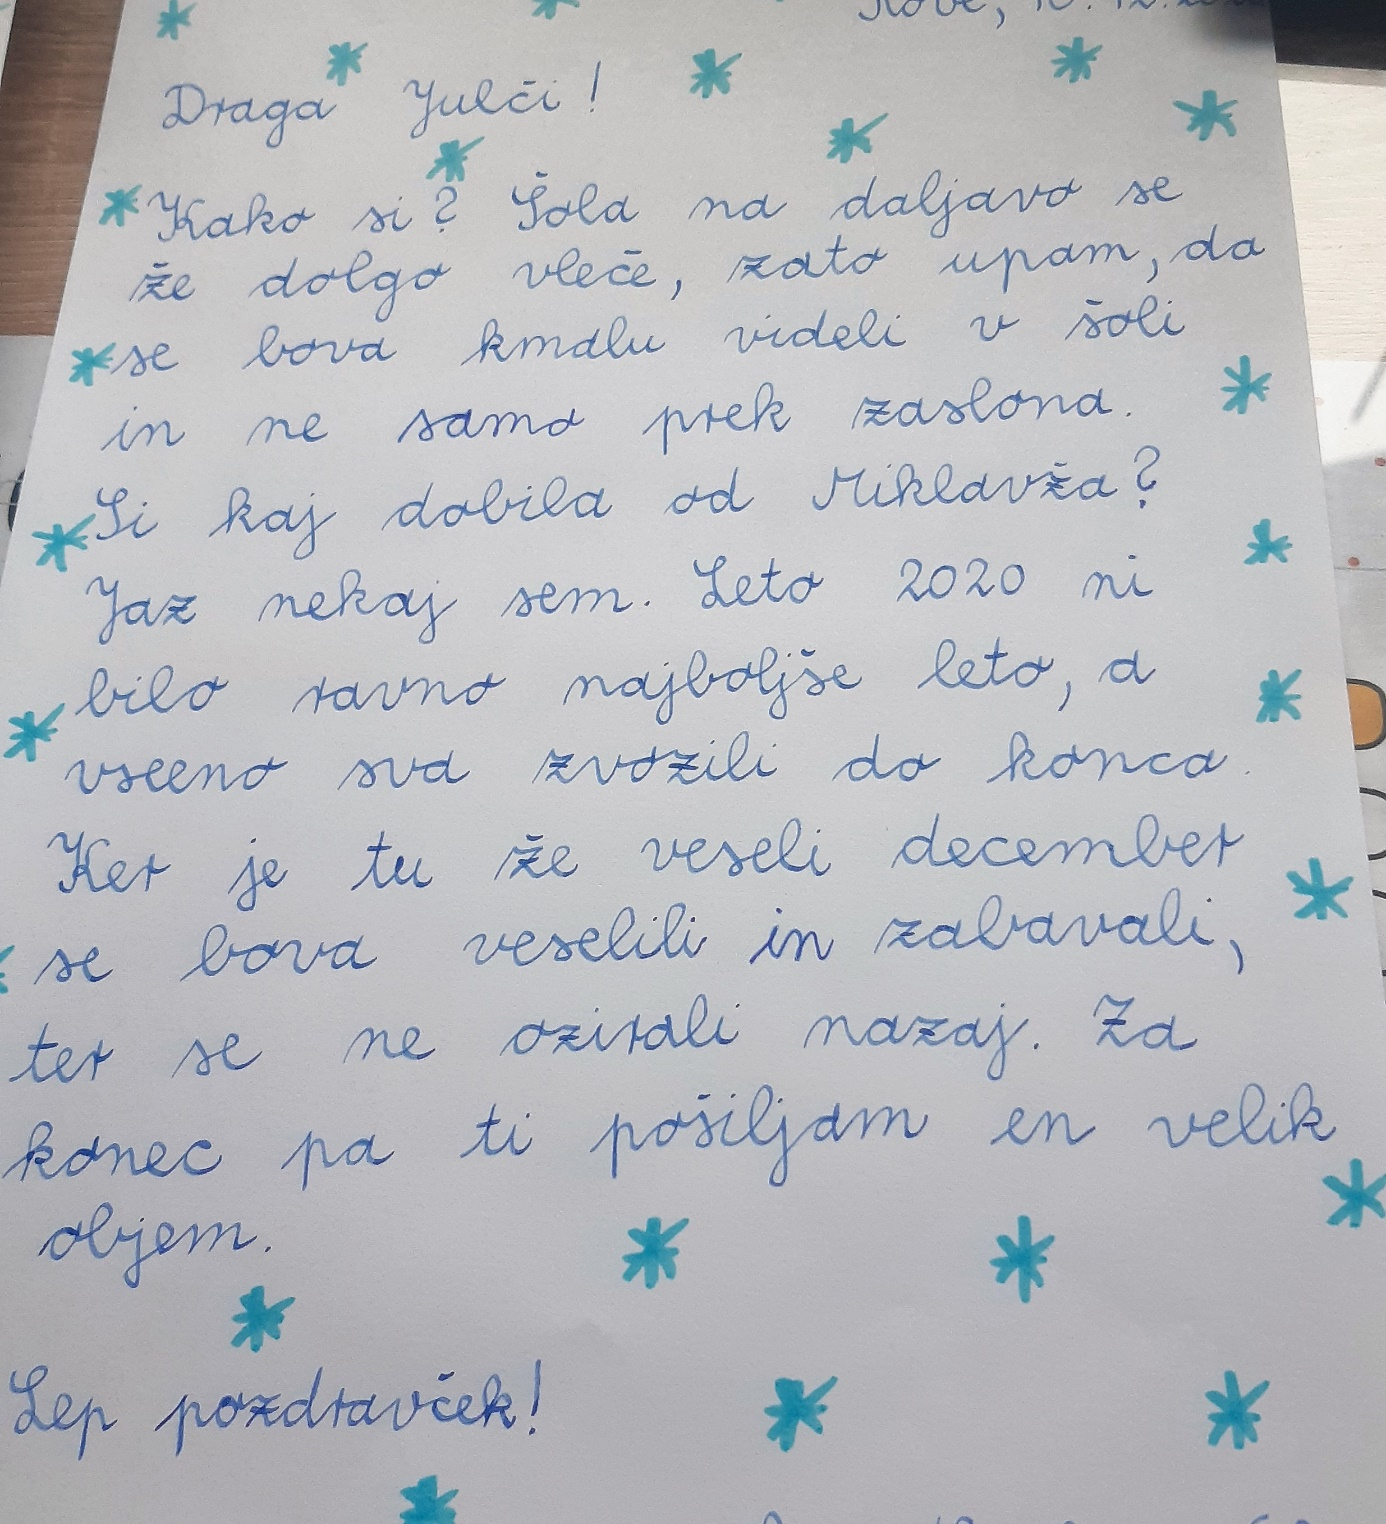 Draga Julči!
Kako si? Šola na daljavo se
že dolgo vleče, zato upam, da
se bova kmalu videli v šoli
in ne samo prek zaslona.
Si kaj dobila od Miklavža?
Jaz nekaj sem. Leto 2020 ni
bilo ravno najboljše leto, a
vseeno sva zvozili do konca.
Ker je tu že veseli december
se bova veselili in zabavali,
ter se ne ozirali nazaj. Za
konec pa ti pošiljam en velik
objem.
Lep pozdravček!